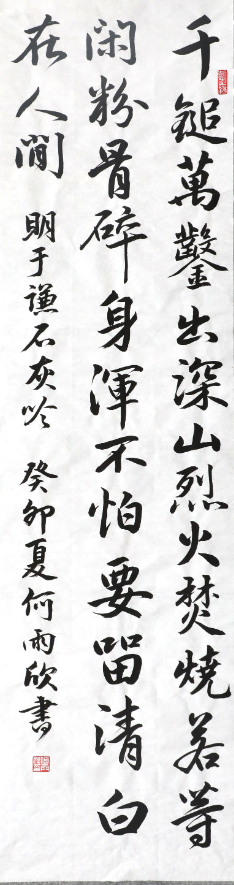 千鎚萬鑿出深山烈火焚燒若等
閑粉骨碎身渾不怕要留清白
在人間
明于謙石灰吟 癸卯夏何雨欣書